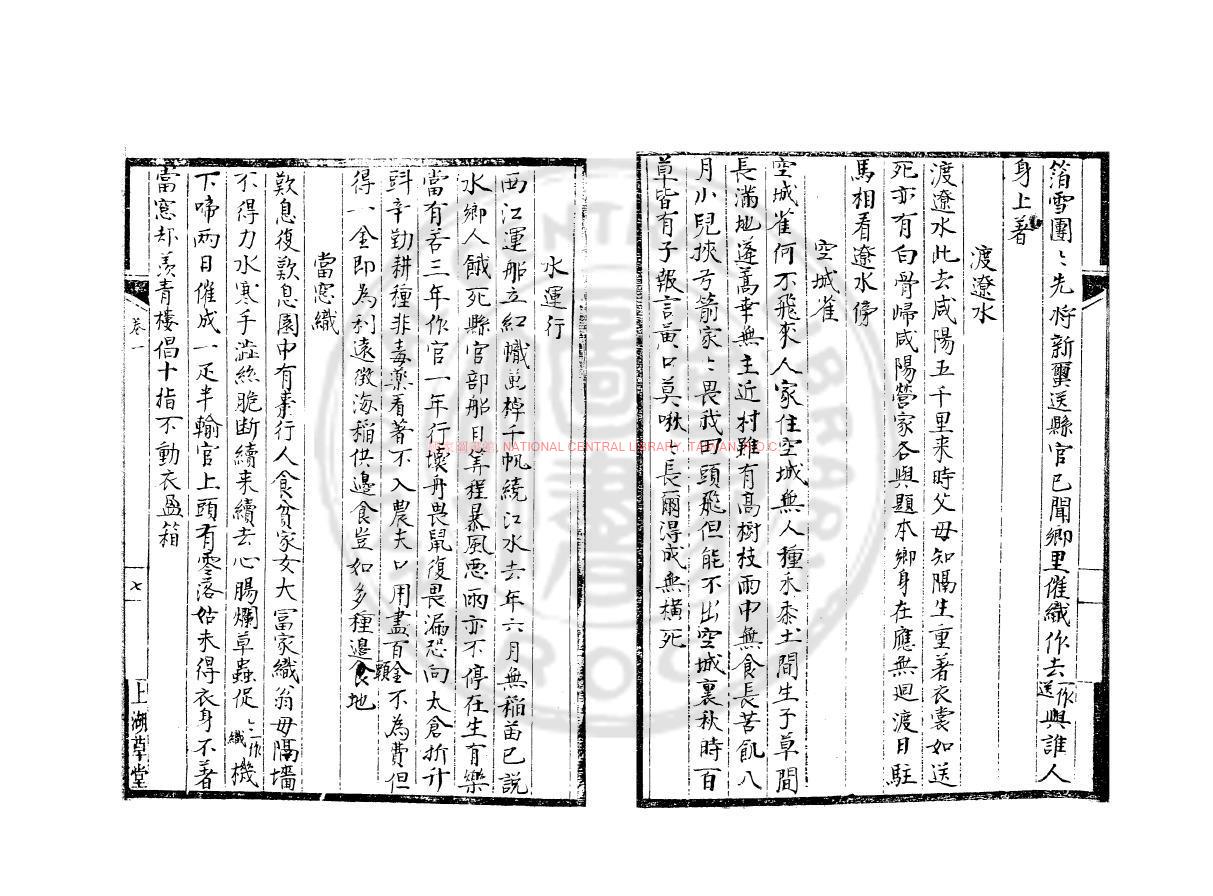 箔雪團〻先将新璽送縣官已聞鄉里催織作去一作送與誰人
身上著
渡遼水
渡遼水此去咸陽五千里来時父母知隔生重著衣裳如送
死亦有白骨歸咸陽營家各與題本鄉身在應無迴渡日駐
馬相看遼水傍
空城雀
空城雀何不飛來人家住空城無人種禾黍土間生子草間
長滿地蓬蒿幸無主近村雖有高樹枝雨中無食長苦飢八
月小兒挾弓箭家〻畏我田頭飛但能不出空城裏秋時百
草皆有子報言黄口莫啾〻長爾得成無横死
水運行
西江運船立紅幟萬棹千帆繞江水去年六月無稲苗已説
水鄉人餓死縣官部船日筭程暴風惡雨亦不停在生有樂
當有苦三年作官一年行壞舟畏鼠復畏漏恐向太倉折升
㪷辛勤耕種非毒藥看著不入農夫口用盡百金不為費但
得一金即為利遠徴海稲供邊食豈如多種邊頭地
當窓織
歎息復歎息園中有棗行人食貧家女大冨家織翁母隔墻
不得力水寒手澁絲脆断續来續去心腸爛草蟲促〻一作織機
下啼兩日催成一疋半輸官上頭有零落姑未得衣身不著
當窓却羡青樓倡十指不動衣盈箱
卷一
七
上湖草堂
NATIONAL CENTRAL LIBRARY, TAIWAN, R.O.C